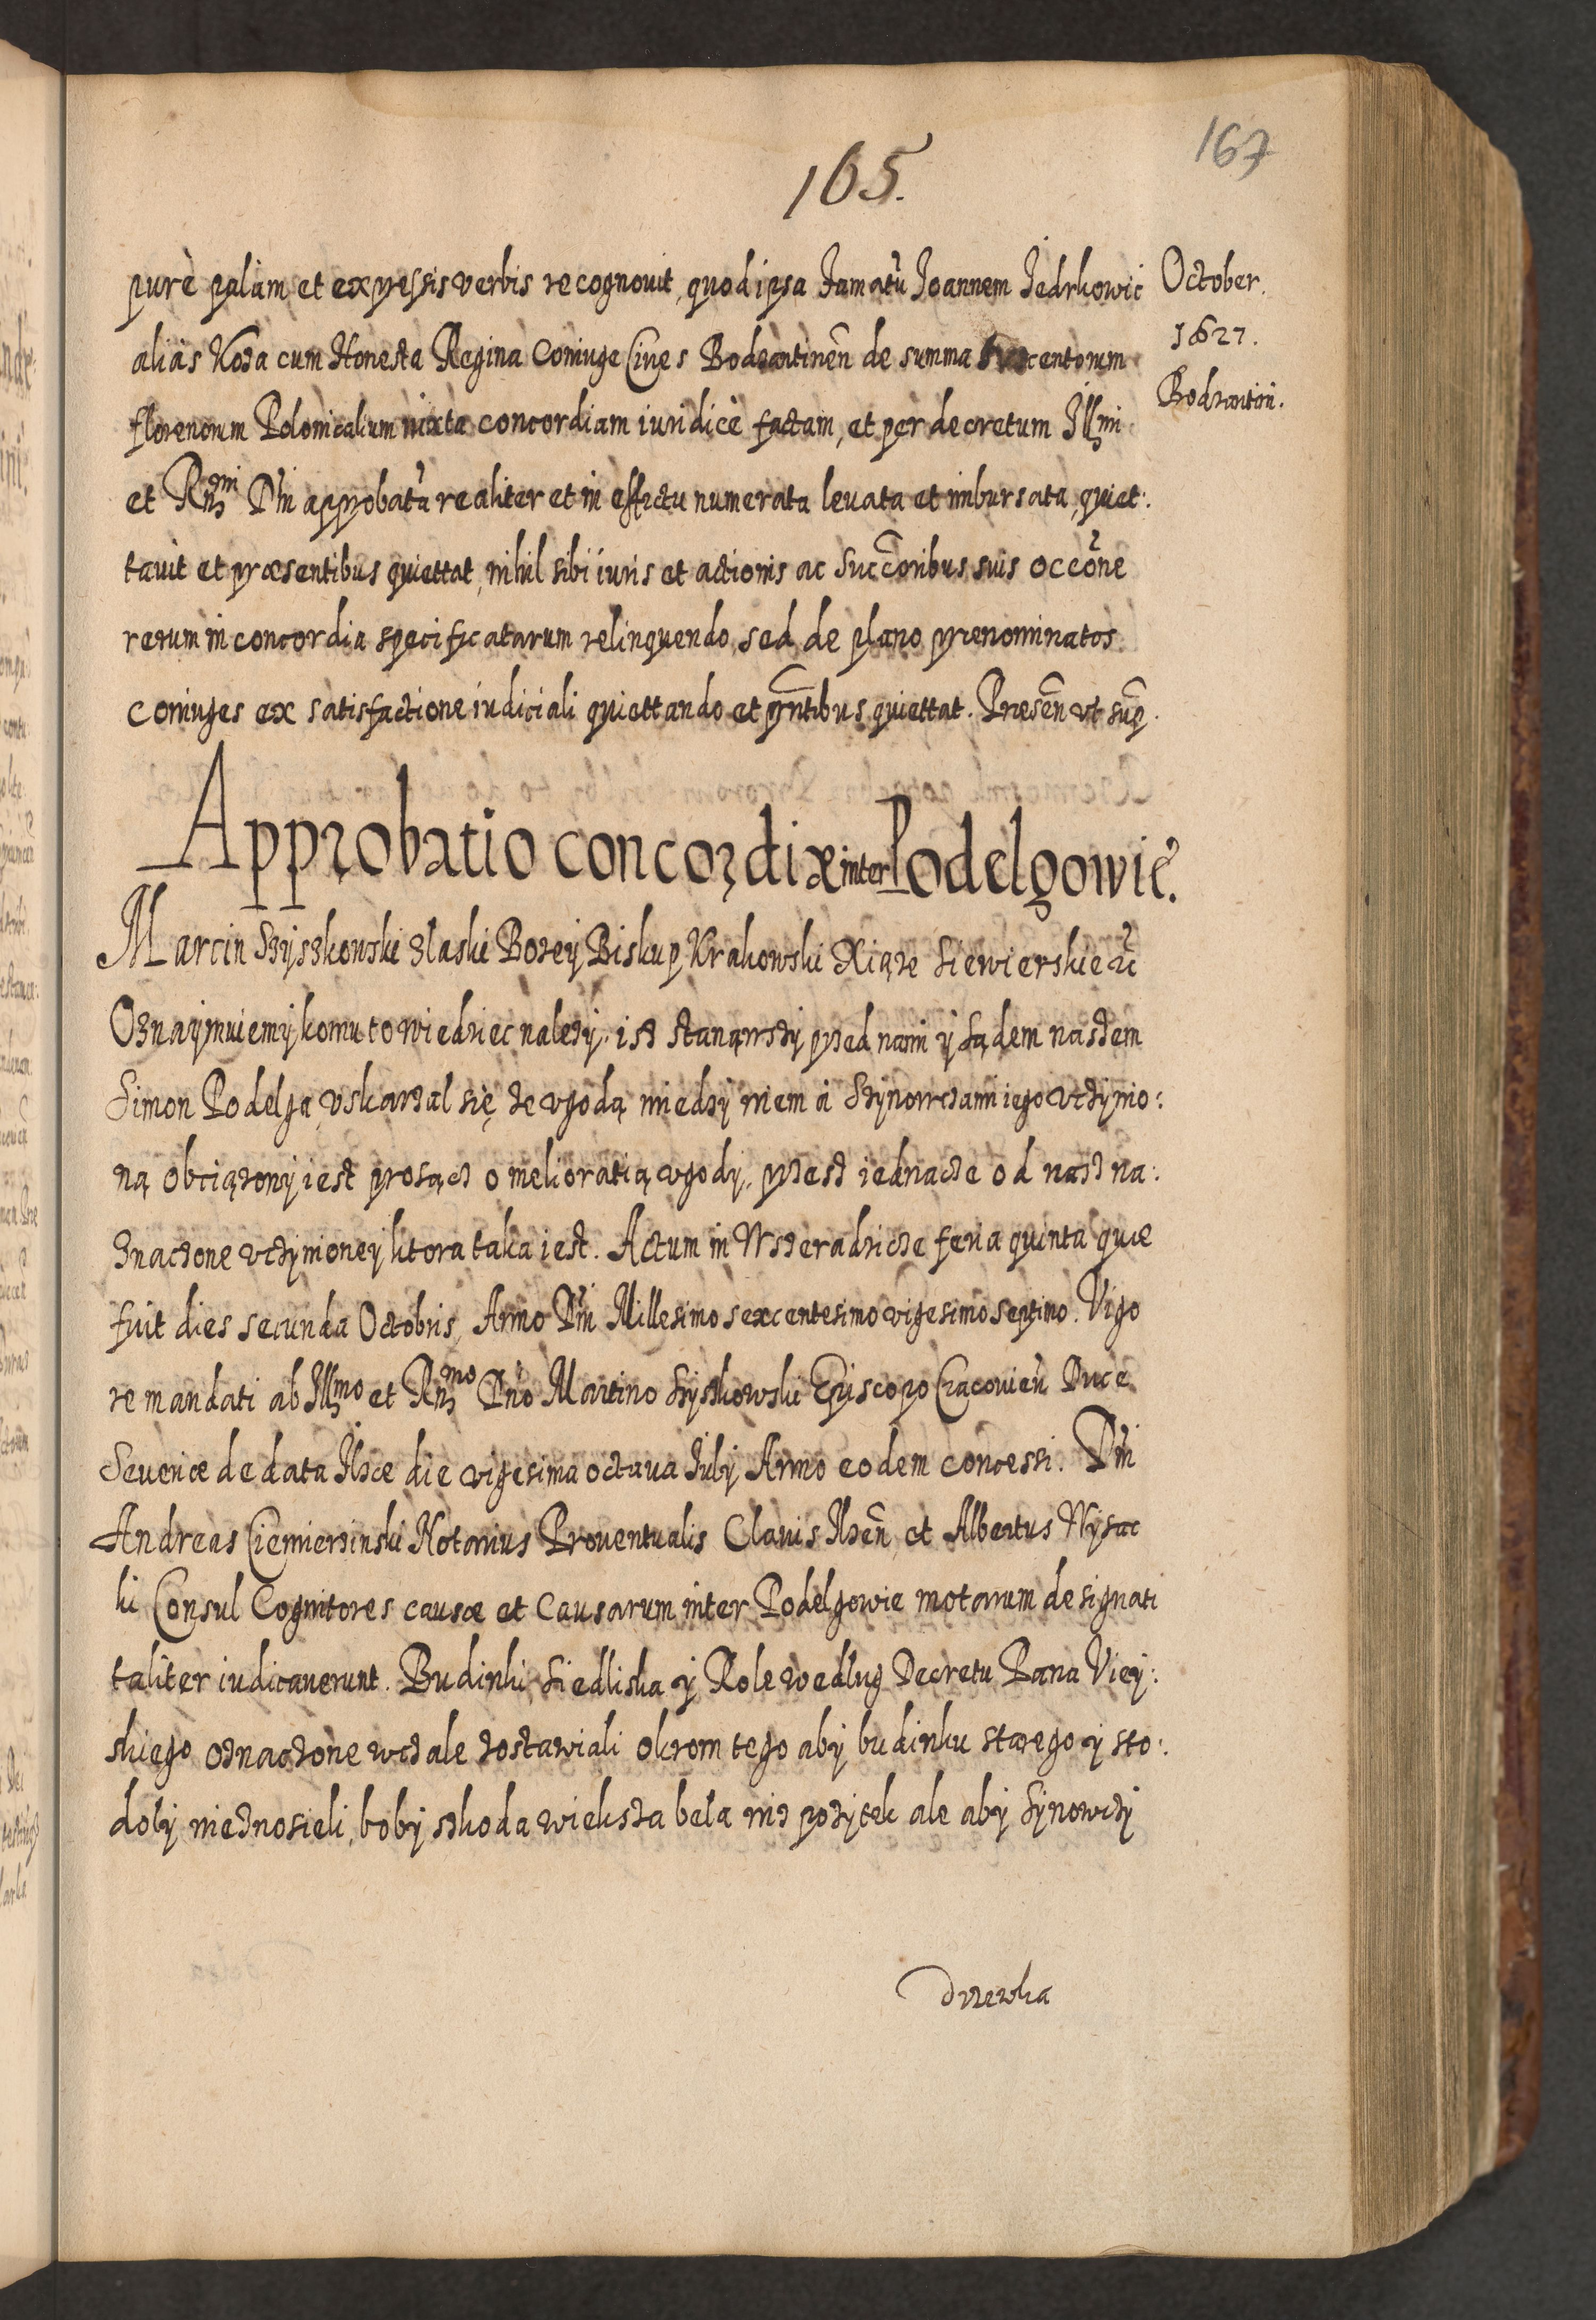 167
165.
October.
1627.
Bodzantin.
purè palàm et expressis verbis recognouit, quod ipsa famatũ Joannem Jedrkowic
aliàs Koza cum Honesta Regina Coniuge Ciues Bodzantinẽn de summa centorum
florenorum Polonicalium iuxta concordiam iuridicè factam, et per decretum Illmi
et Rndmi Dñi approbatũ realiter et in effectu numerata leuata et imbursata, quiet:
tauit et præsentibus quiettat, nihil sibi iuris et actionis ac Succõribus suis occõne
rerum in concordia specificatarum relinquendo, sed de plano prænominatos
coniuges ex satisfactione iudiciali quiettando et pñtibus quiettat. Præsẽn vt sup̃.
Approbatio concordiæ inter Podelgowic.
Marcin Szyszkowski z łaski Bozey Biskup Krakowski Xiąze Siewierskie &c
Oznaymuiemy komu to wiedziec nalezy, isz stanąwszy przed nami y sądem naszem
Simon Podelga, vskarzal się ze vgodą miedzy niem a Szynowczami iego vczynio:
ną obciązony iest prosącz o melioratią vgody, przesz iednacze od nasz na:
znaczone vczynioney ktora taka iest. Actum in Wszeradzicze feria quinta quæ
fuit dies secunda Octobris, Anno Dñi Millesimo sexcentesimo vigesimo septimo. Vigo
re mandati ab Illmo et Rndmo Dño Martino Szyszkowski Episcopo Cracouieñ Duce
Seueriæ de data Ilzæ die vigesima octaua July Anno eodem concessi. Dñi
Andreas Ciemierzinski Notarius Prouentualis Clauis Ilzẽn, et Albertus Wysac
ki Consul Cognitores causæ et Causarum inter Podelgowie motarum designati
taliter iudicauerunt. Budinki Siedliska y Role wedlug Decretu Pana Viey:
skiego oznaczone wczale zostawiali okrom tego aby budinku starego y sto:
doły nieznosieli, boby szkoda wieksza beła niz pozytek ale aby Synowczy
drzewka